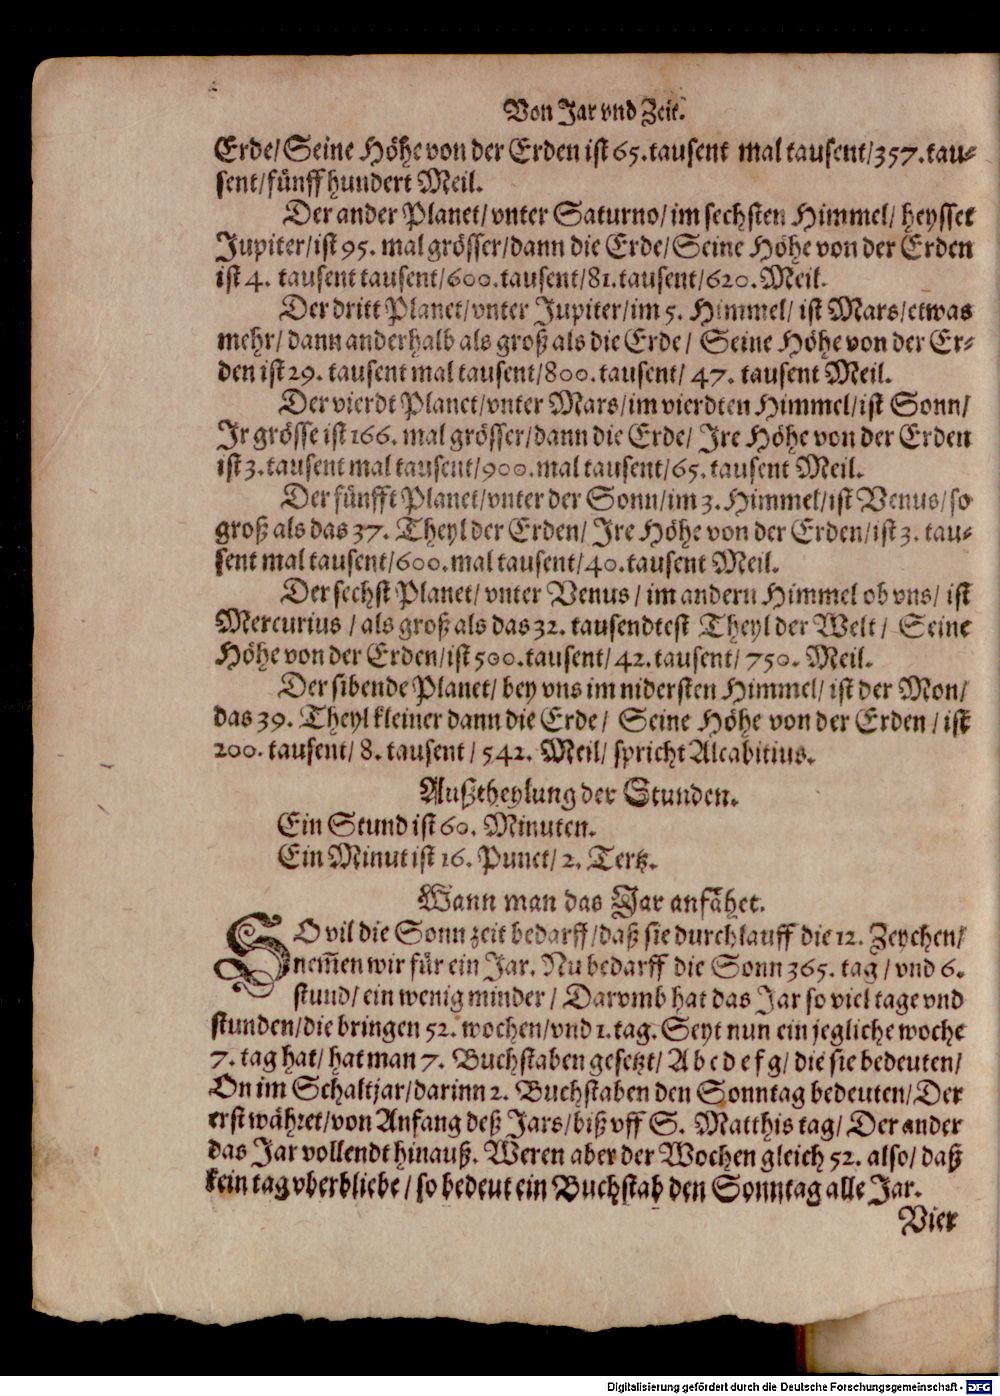 Von Jar vnd Zeit.
Erde/ Seine Höhe von der Erden ist 65. tausent mal tausent/ 357. tau⸗
sent/ fünff hundert Meil.
Der ander Planet/ vnter Saturno/ im sechsten Himmel/ heysset
Jupiter/ ist 95. mal grösser/ dann die Erde/ Seine Höhe von der Erden
ist 4. tausent tausent/ 600. tausent/ 81. tausent/ 620. Meil.
Der dritt Planet/ vnter Jupiter/ im 5. Himmel/ ist Mars/ etwas
mehr/ dann anderhalb als groß als die Erde/ Seine Höhe von der Er⸗
den ist 29. tausent mal tausent/ 800. tausent/ 47. tausent Meil.
Der vierdt Planet/ vnter Mars/ im vierdten Himmel/ ist Sonn/
Jr grösse ist 166. mal grösser/ dann die Erde/ Jre Höhe von der Erden
ist 3. tausent mal tausent/ 900. mal tausent/ 65. tausent Meil.
Der fünfft Planet/ vnter der Sonn/ im 3. Himmel/ ist Venus/ so
groß als das 37. Theyl der Erden/ Jre Höhe von der Erden/ ist 3. tau⸗
sent mal tausent/ 600. mal tausent/ 40. tausent Meil.
Der sechst Planet/ vnter Venus/ im andern Himmel ob vns/ ist
Mercurius/ als groß als das 32. tausendtest Theyl der Welt/ Seine
Höhe von der Erden/ ist 500. tausent/ 42. tausent/ 750. Meil.
Der sibende Planet/ bey vns im nidersten Himmel/ ist der Mon/
das 39. Theyl kleiner dann die Erde/ Seine Höhe von der Erden/ ist
200. tausent/ 8. tausent/ 542. Meil/ spricht Alcabitius.
Außtheylung der Stunden.
Ein Stund ist 60. Minuten.
Ein Minut ist 16. Punct/ 2. Tertz.
Wann man das Jar anfähet.
SO vil die Sonn zeit bedarff/ daß sie durchlauff die 12. Zeychen/
nem̃en wir für ein Jar. Nu bedarff die Sonn 365. tag/ vnd 6.
stund/ ein wenig minder/ Darvmb hat das Jar so viel tage vnd
stunden/ die bringen 52. wochen/ vnd 1. tag. Seyt nun ein jegliche woche
7. tag hat/ hat man 7. Buchstaben gesetzt/ A b c d e f g/ die sie bedeuten/
On im Schaltjar/ darinn 2. Buchstaben den Sonntag bedeuten/ Der
erst währet/ von Anfang deß Jars/ biß vff S. Matthis tag/ Der ander
das Jar vollendt hinauß. Weren aber der Wochen gleich 52. also/ daß
kein tag vberbliebe/ so bedeut ein Buchstab den Sonntag alle Jar.
Vier
Digitalisierung gefördert durch die Deutsche Forschungsgemeinschaft - DFG